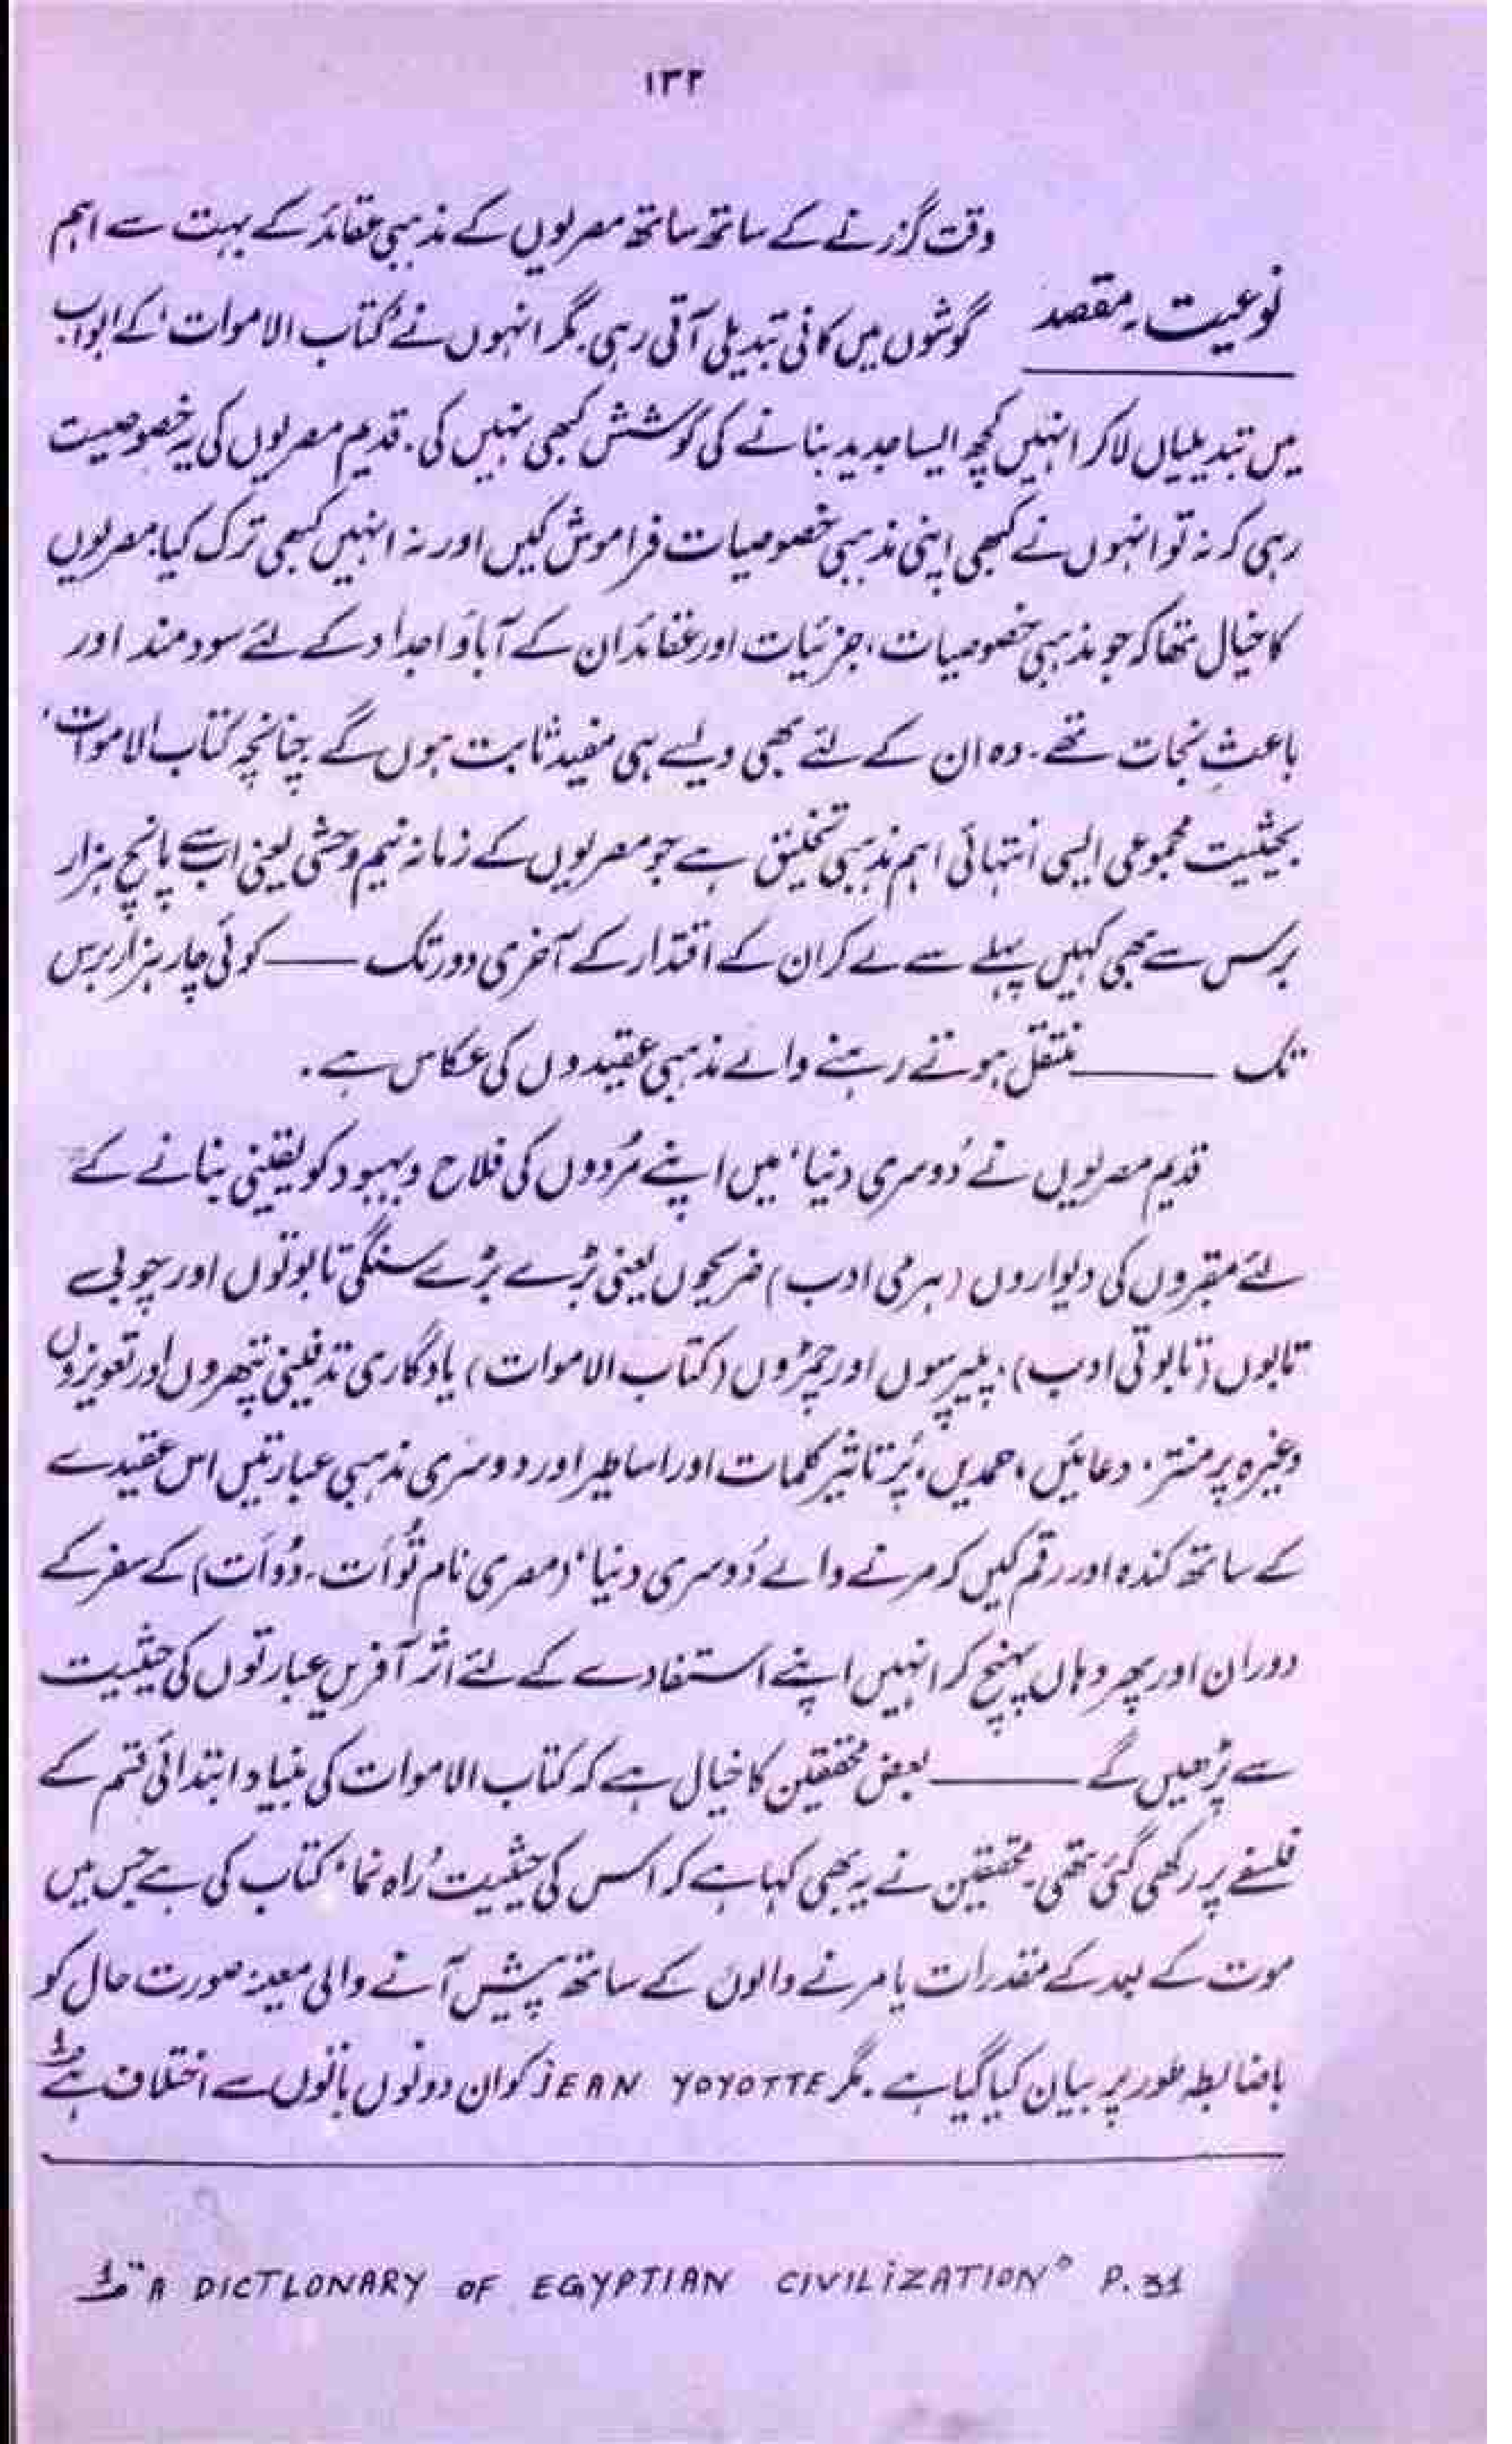 ۱۳۲
وقت گزرنے کے ساتھ ساتھ مصریوں کے مذہبی عقائد کے بہت سے اہم
نوعیت۔ مقصد
گوشوں میں کافی تبدیلی آتی رہی۔ مگر انہوں نے 'کتاب الاموات' کے ابواب
میں تبدیلیاں لا کر انہیں کچھ ایسا جدید بنانے کی کوشش کبھی نہیں کی۔ قدیم مصریوں کی یہ خصوصیت
رہی کہ نہ تو انہوں نے کبھی اپنی مذہبی خصوصیات فراموش کیں اور نہ انہیں کبھی ترک کیا۔ مصریوں
کا خیال تھا کہ جو مذہبی خصوصیات، جزئیات اور عقائد ان کے آباؤ اجداد کے لئے سود مند اور
باعثِ نجات تھے۔ وہ ان کے لئے بھی ویسے ہی مفید ثابت ہوں گے۔ چنانچہ کتاب الاموات'
بحیثیت مجموعی ایسی انتہائی اہم مذہبی تخلیق ہے جو مصریوں کے زمانہ نیم وحشی یعنی اب سے پانچ ہزار
برس سے بھی کہیں پہلے سے لے کر ان کے اقتدار کے آخری دور تک —— کوئی چار ہزار برس
تک —— منتقل ہوتے رہنے والے مذہبی عقیدوں کی عکاس ہے۔
قدیم مصریوں نے 'دُوسری دنیا' میں اپنے مُردوں کی فلاح و بہبود کو یقینی بنانے کے
لئے مقبروں کی دیواروں (ہرمی ادب) ضریحوں یعنی بڑے بڑے سنگی تابوتوں اور چوبی
تابوں (تابوتی ادب)، پیپرسوں اور چمڑوں (کتاب الاموات) یادگاری تدفینی پتھروں اور تعویزوں
وغیرہ پر منتر، دعائیں، حمدیں، پُر تاثیر کلمات اور اساطیر اور دوسری مذہبی عبارتیں اس عقیدے
کے ساتھ کندہ اور رقم کیں کہ مرنے والے 'دُوسری دنیا' (مصری نام تُواَت۔ دُواَت) کے سفر کے
دوران اور پھر وہاں پہنچ کر انہیں اپنے استفادے کے لئے اثر آفریں عبارتوں کی حیثیت
سے پڑھیں گے —— بعض محققین کا خیال ہے کہ کتاب الاموات کی بنیاد ابتدائی قسم کے
فلسفے پر رکھی گئی تھی۔ محققین نے یہ بھی کہا ہے کہ اس کی حیثیت 'راہ نما' کتاب کی ہے جس میں
موت کے بعد کے مقدرات یا مرنے والوں کے ساتھ پیش آنے والی معینہ صورت حال کو
باضابطہ طور پر بیان کیا گیا ہے۔ مگر JEAN YOYOTTE کو ان دونوں باتوں سے اختلاف ہے 1
1 "A DICTLONARY OF EGYPTIAN CIVILIZATION" P.31